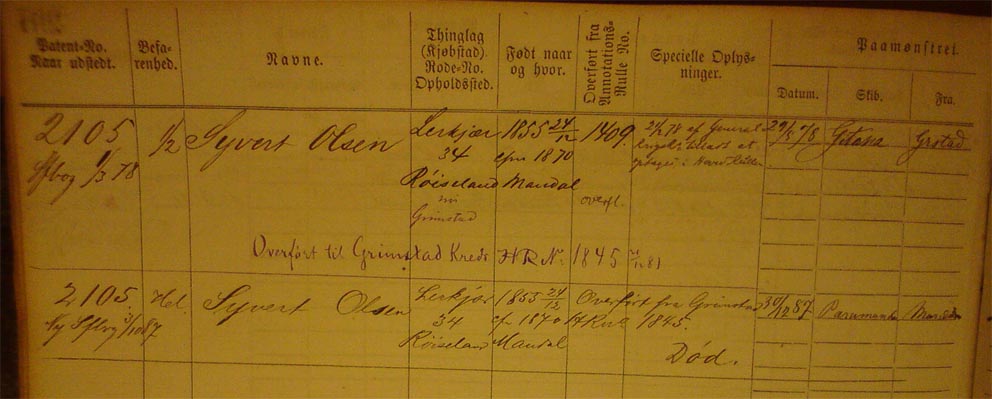 Patent-No.
Naar udstedt.
Befa-
renhed.
Navne.
Thinglag
(Kjøbstad).
Rode-No.
Opholdssted.
Født naar
og hvor.
Overført fra
Annotations-
Rulle No.
Specielle Oplys-
ninger.
Paamønstret
Datum.
Skib.
Fra.
2105
1/3 78
1/2
Syvert Olsen
Lerkjær
34
Røiseland
Grimstad
1855 24/12
1870
Mandal
1409.
overfl.
24/2 78 af General
29/8 78
Gitana
Grstad
Overført til Grimstad Kreds HR No. 1845
2105.
Hel.
Syvert Olsen
Lerkjær
34
Røiseland
1855 24/12
1870
Mandal
Overført fra Grimstad
1845.
Død.
30/12 87